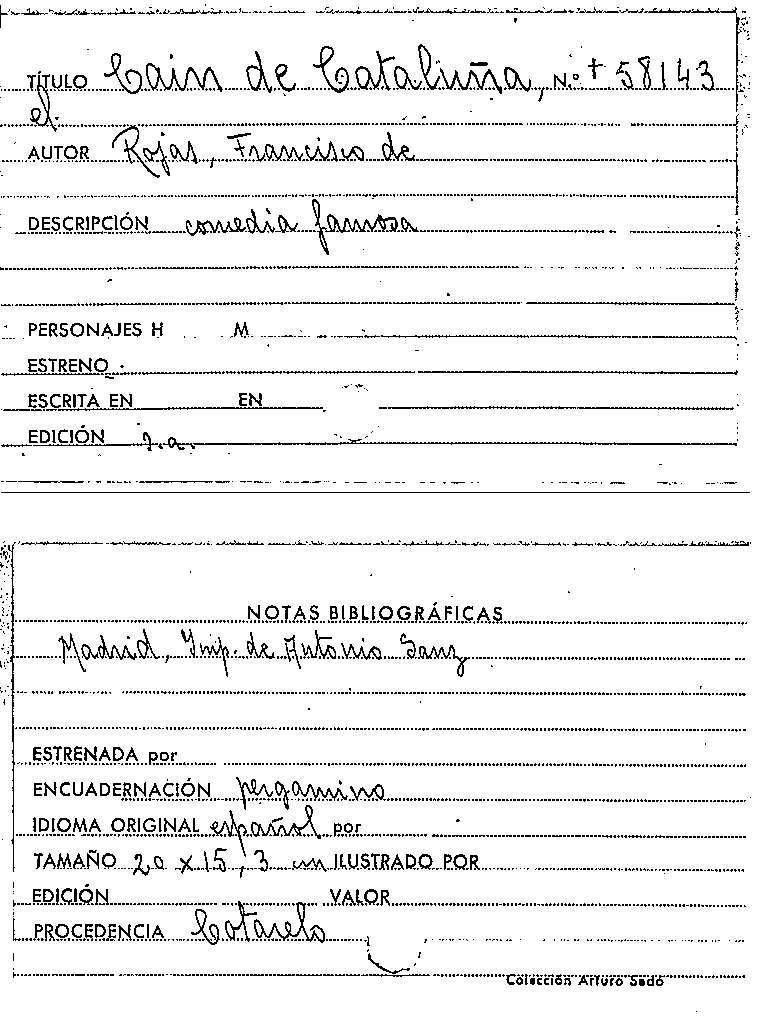 TÍTULO Cain de Cataluña, N.º + 58143
el.
AUTOR Rojas, Francisco de
DESCRIPCIÓN comedia famosa
PERSONAJES H M
ESTRENO
ESCRITA EN EN
EDICIÓN s.a.
NOTAS BIBLIOGRÁFICAS
Madrid, Imp. de Antonio Sanz
ESTRENADA por
ENCUADERNACIÓN pergamino
IDIOMA ORIGINAL español por
TAMAÑO 20 x 15,3 cm ILUSTRADO POR
EDICIÓN VALOR
PROCEDENCIA Cotarelo
Colección Arturo Sedó